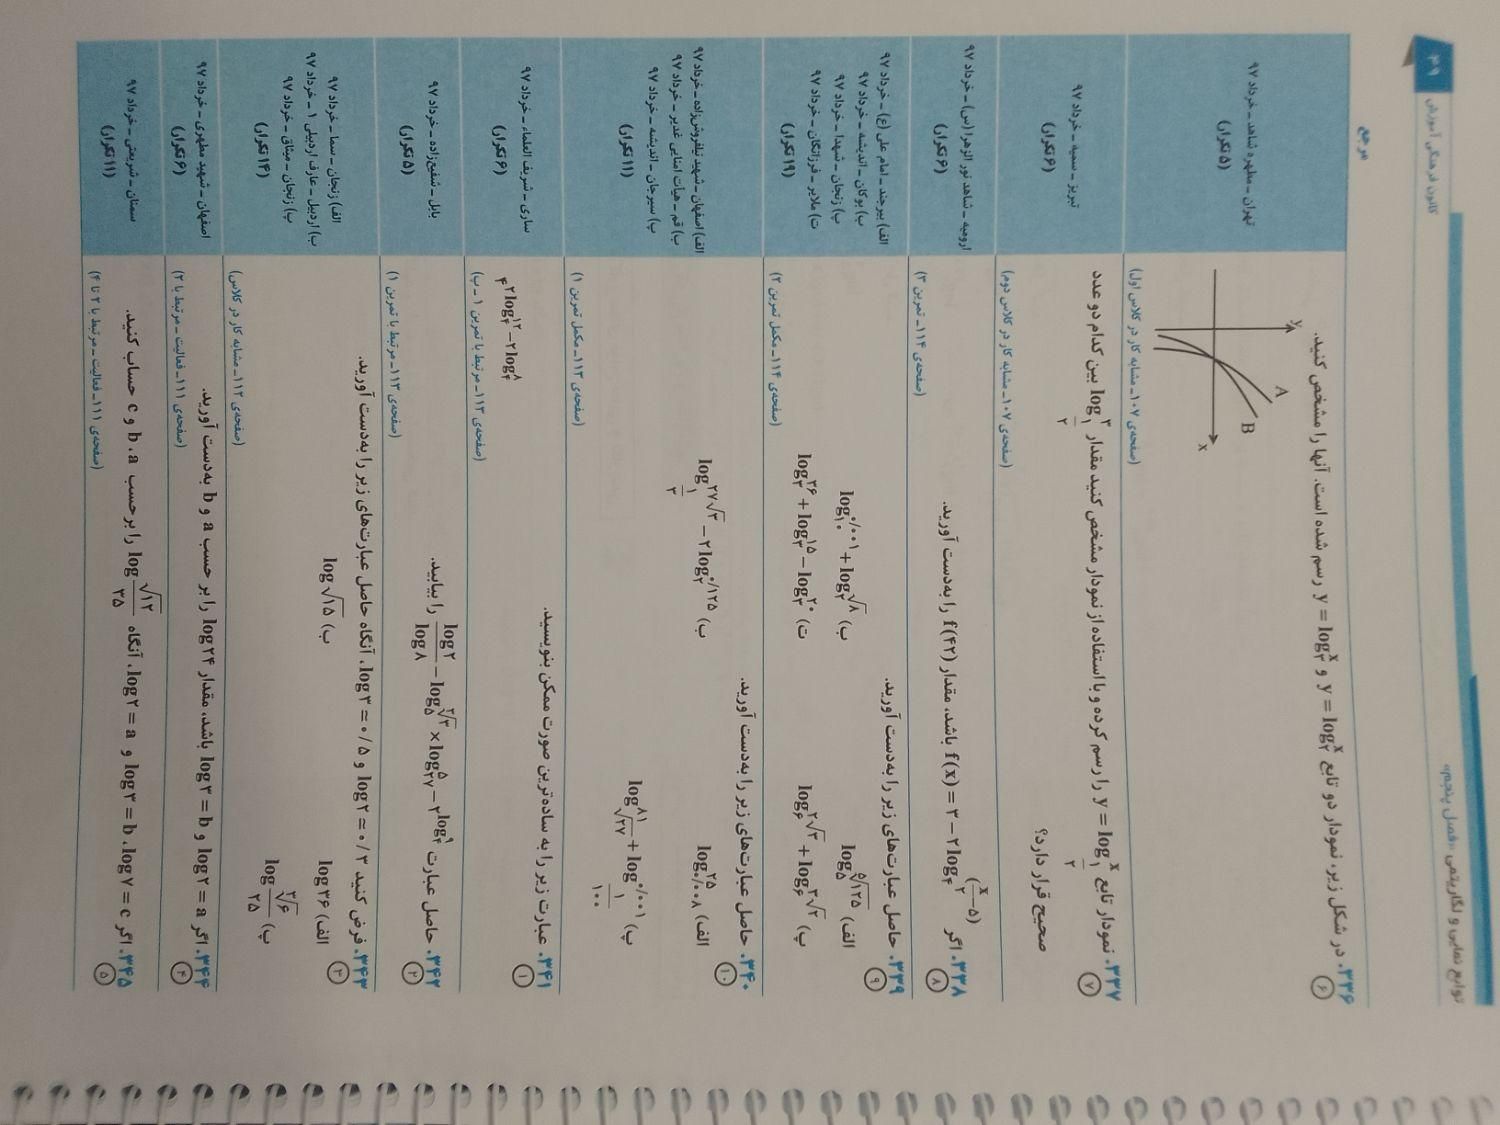 توابع نمایی و لگاریتمی «فصل پنجم»
کانون فرهنگی آموزش
۴۹
مرجع
۳۳۶. در شکل زیر، نمودار دو تابع y = log₂ˣ و y = log₃ˣ رسم شده است. آنها را مشخص کنید.
۶
y
A
B
x
(صفحه‌ی ۱۰۷ـ مشابه کار در کلاس اول)
تهران ـ مطهره شاهد ـ خرداد ۹۷
(۵ تکرار)
۳۳۷. نمودار تابع y = log_{۱/۲}^{x} را رسم کرده و با استفاده از نمودار مشخص کنید مقدار log_{۱/۲}^{۳} بین کدام دو عدد
۷
صحیح قرار دارد؟
(صفحه‌ی ۱۰۷ـ مشابه کار در کلاس دوم)
تبریز ـ سمیه ـ خرداد ۹۷
(۶ تکرار)
۳۳۸. اگر f(x) = ۳ − ۲ log_{۴}^{(x/۲ − ۵)} باشد، مقدار f(۴۲) را به‌دست آورید.
۸
(صفحه‌ی ۱۱۴ـ تمرین ۳)
ارومیه ـ شاهد نور الزهرا (س) ـ خرداد ۹۷
(۶ تکرار)
۳۳۹. حاصل عبارت‌های زیر را به‌دست آورید.
۹
الف) log_{۵}^{\sqrt[۵]{۱۲۵}}
ب) log_{۱۰}^{۰/۰۰۱} + log_{۲}^{√۸}
پ) log_{۶}^{۲√۳} + log_{۶}^{۳√۲}
ت) log_{۳}^{۳۶} + log_{۳}^{۱۵} − log_{۳}^{۲۰}
(صفحه‌ی ۱۱۴ـ مکمل تمرین ۲)
الف) بیرجند ـ امام علی (ع) ـ خرداد ۹۷
ب) بوکان ـ اندیشه ـ خرداد ۹۷
پ) زنجان ـ شهدا ـ خرداد ۹۷
ت) ملایر ـ فرزانگان ـ خرداد ۹۷
(۱۹ تکرار)
۳۴۰. حاصل عبارت‌های زیر را به‌دست آورید.
۱۰
الف) log_{۰/۰۰۸}^{۲۵}
ب) log_{۱/۳}^{۲۷√۳} − ۲ log_{۲}^{۰/۱۲۵}
پ) log_{√۲۷}^{۸۱} + log_{۱/۱۰۰}^{۰/۰۰۱}
(صفحه‌ی ۱۱۳ـ مکمل تمرین ۱)
الف) اصفهان ـ شهید نیلفروش‌زاده ـ خرداد ۹۷
ب) قم ـ هیأت امنایی غدیر ـ خرداد ۹۷
پ) سیرجان ـ اندیشه ـ خرداد ۹۷
(۱۱ تکرار)
۳۴۱. عبارت زیر را به ساده‌ترین صورت ممکن بنویسید.
۱
۴^{۲ log_{۴}^{۱۲} − ۲ log_{۴}^{۸}}
(صفحه‌ی ۱۱۳ـ مرتبط با تمرین ۱ ـ ب)
ساری ـ شریف العلماء ـ خرداد ۹۷
(۶ تکرار)
۳۴۲. حاصل عبارت log ۲ / log ۸ − log_{۵}^{\sqrt[۲]{۳}} × log_{۲۷}^{۵} − ۲^{log_{۴}^{۹}} را بیابید.
۲
(صفحه‌ی ۱۱۳ـ مرتبط با تمرین ۱)
بابل ـ شفیع‌زاده ـ خرداد ۹۷
(۵ تکرار)
۳۴۳. فرض کنید log ۲ = ۰/۳ و log ۳ = ۰/۵، آنگاه حاصل عبارت‌های زیر را به‌دست آورید.
۳
الف) log ۳۶
ب) log √۱۵
پ) log \sqrt[۳]{۶}/۲۵
(صفحه‌ی ۱۱۲ـ مشابه کار در کلاس)
الف) زنجان ـ سما ـ خرداد ۹۷
ب) اردبیل ـ عارف اردبیلی ۱ ـ خرداد ۹۷
پ) زنجان ـ میثاق ـ خرداد ۹۷
(۱۴ تکرار)
۳۴۴. اگر log ۲ = a و log ۳ = b باشد، مقدار log ۲۴ را بر حسب a و b به‌دست آورید.
۴
(صفحه‌ی ۱۱۱ـ فعالیت ـ مرتبط با ۲)
اصفهان ـ شهید مطهری ـ خرداد ۹۷
(۶ تکرار)
۳۴۵. اگر log ۷ = c، log ۳ = b و log ۲ = a، آنگاه log √۱۲/۳۵ را بر حسب a، b و c حساب کنید.
۵
(صفحه‌ی ۱۱۱ـ فعالیت ـ مرتبط با ۲ تا ۴)
سمنان ـ شریعتی ـ خرداد ۹۷
(۱۱ تکرار)